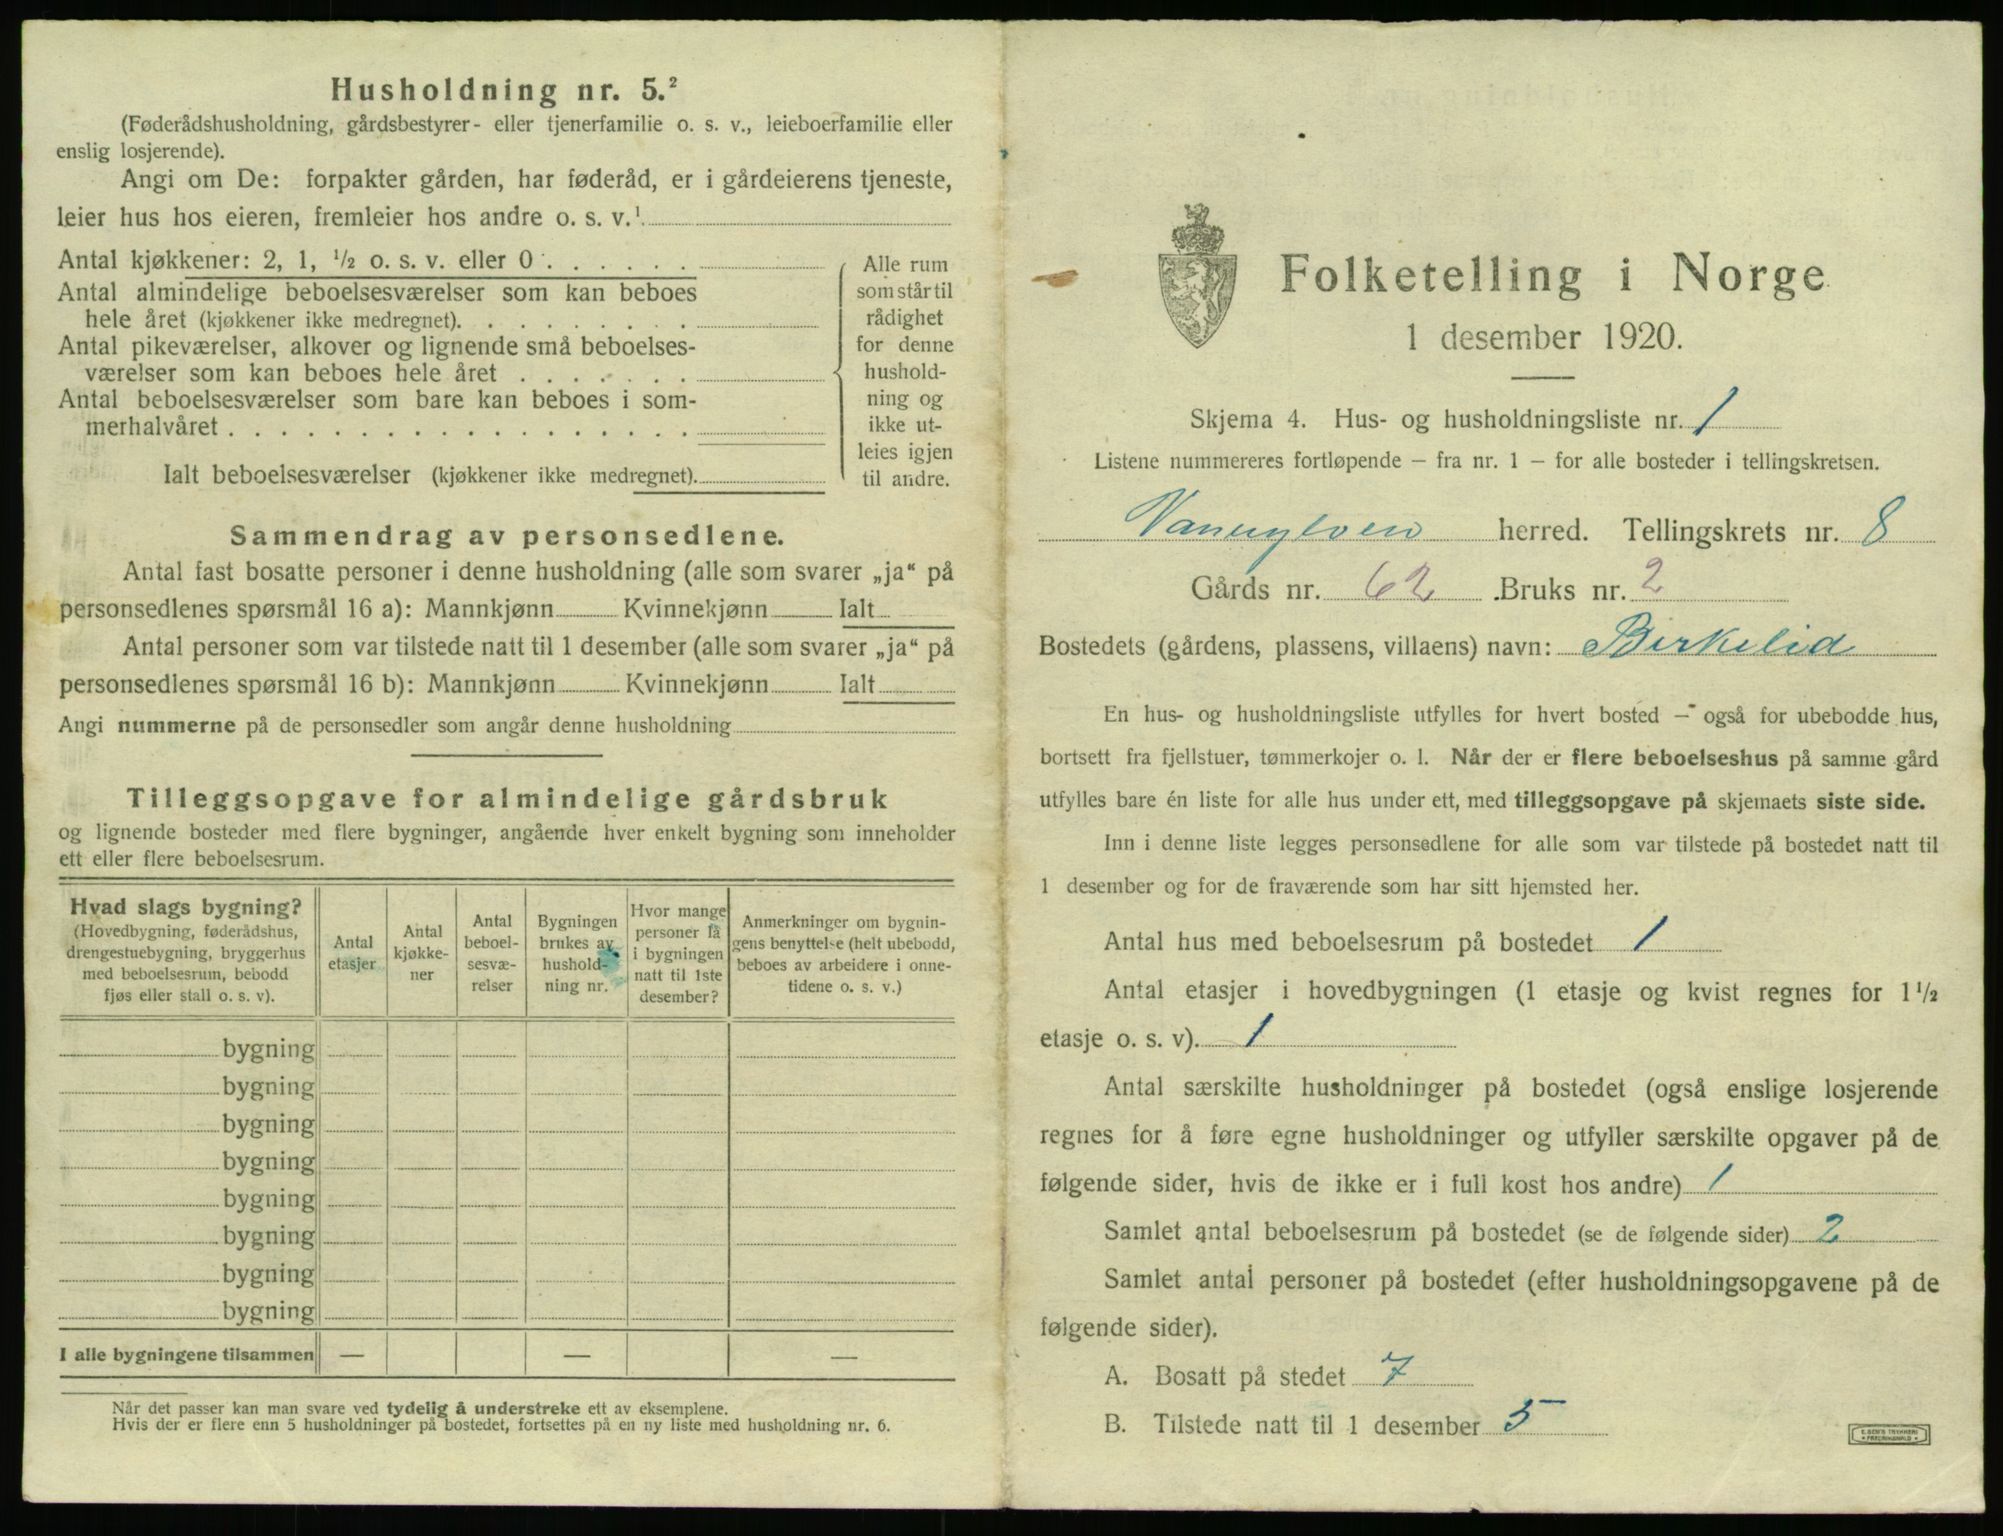 Husholdning nr. 5.²
(Føderådshusholdning, gårdsbestyrer- eller tjenerfamilie o. s. v., leieboerfamilie eller
enslig losjerende).
Angi om De: forpakter gården, har føderåd, er i gårdeierens tjeneste,
leier hus hos eieren, fremleier hos andre o. s. v.¹
Antal kjøkkener: 2, 1, ½ o. s. v. eller 0
Antal almindelige beboelsesværelser som kan beboes
hele året (kjøkkener ikke medregnet).
Antal pikeværelser, alkover og lignende små beboelses-
værelser som kan beboes hele året
Antal beboelsesværelser som bare kan beboes i som-
merhalvåret
Ialt beboelsesværelser (kjøkkener ikke medregnet).
Alle rum
som står til
rådighet
for denne
hushold-
ning og
ikke ut-
leies igjen
til andre.
Sammendrag av personsedlene.
Antal fast bosatte personer i denne husholdning (alle som svarer „ja“ på
personsedlenes spørsmål 16 a): Mannkjønn Kvinnekjønn Ialt
Antal personer som var tilstede natt til 1 desember (alle som svarer „ja“ på
personsedlenes spørsmål 16 b): Mannkjønn Kvinnekjønn Ialt
Angi nummerne på de personsedler som angår denne husholdning
Tilleggsopgave for almindelige gårdsbruk
og lignende bosteder med flere bygninger, angående hver enkelt bygning som inneholder
ett eller flere beboelsesrum.
Hvad slags bygning?
(Hovedbygning, føderådshus,
drengestuebygning, bryggerhus
med beboelsesrum, bebodd
fjøs eller stall o. s. v).
Antal
etasjer
Antal
kjøkke-
ner
Antal
beboel-
sesvæ-
relser
Bygningen
brukes av
hushold-
ning nr.
Hvor mange
personer få
i bygningen
natt til 1ste
desember?
Anmerkninger om bygnin-
gens benyttelse (helt ubebodd,
beboes av arbeidere i onne-
tidene o. s. v.)
bygning
bygning
bygning
bygning
bygning
bygning
bygning
bygning
I alle bygningene tilsammen — — —
Når det passer kan man svare ved tydelig å understreke ett av eksemplene.
Hvis der er flere enn 5 husholdninger på bostedet, fortsettes på en ny liste med husholdning nr. 6.
Folketelling i Norge
1 desember 1920.
Skjema 4. Hus- og husholdningsliste nr. 1
Listene nummereres fortløpende – fra nr. 1 – for alle bosteder i tellingskretsen.
Vannylven herred. Tellingskrets nr. 8
Gårds nr. 62 Bruks nr. 2
Bostedets (gårdens, plassens, villaens) navn: Birkelid
En hus- og husholdningsliste utfylles for hvert bosted – også for ubebodde hus,
bortsett fra fjellstuer, tømmerkojer o. l. Når der er flere beboelseshus på samme gård
utfylles bare én liste for alle hus under ett, med tilleggsopgave på skjemaets siste side.
Inn i denne liste legges personsedlene for alle som var tilstede på bostedet natt til
1 desember og for de fraværende som har sitt hjemsted her.
Antal hus med beboelsesrum på bostedet 1
Antal etasjer i hovedbygningen (1 etasje og kvist regnes for 1½
etasje o. s. v). 1
Antal særskilte husholdninger på bostedet (også enslige losjerende
regnes for å føre egne husholdninger og utfyller særskilte opgaver på de
følgende sider, hvis de ikke er i full kost hos andre) 1
Samlet antal beboelsesrum på bostedet (se de følgende sider) 2
Samlet antal personer på bostedet (efter husholdningsopgavene på de
følgende sider).
A. Bosatt på stedet 7
B. Tilstede natt til 1 desember 5